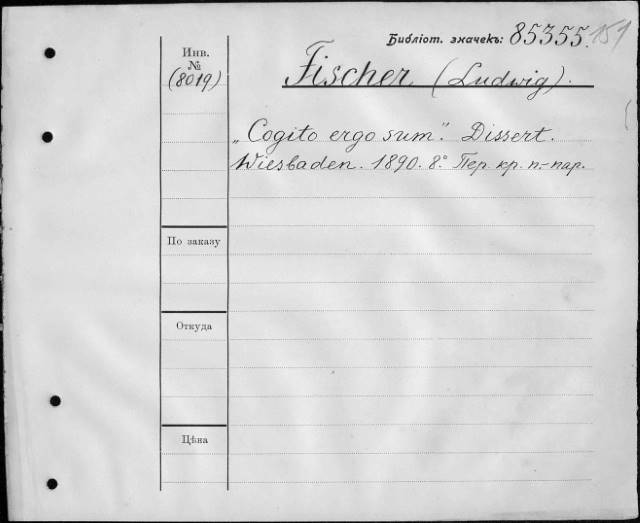 Библіот. значекъ: 85355. 151
Инв.
№
(8019)
Fischer (Ludwig).
„Cogito ergo sum“. Dissert.
Wiesbaden. 1890. 8°. Пер. кр. п.-пар.
По заказу
Откуда
Цѣна